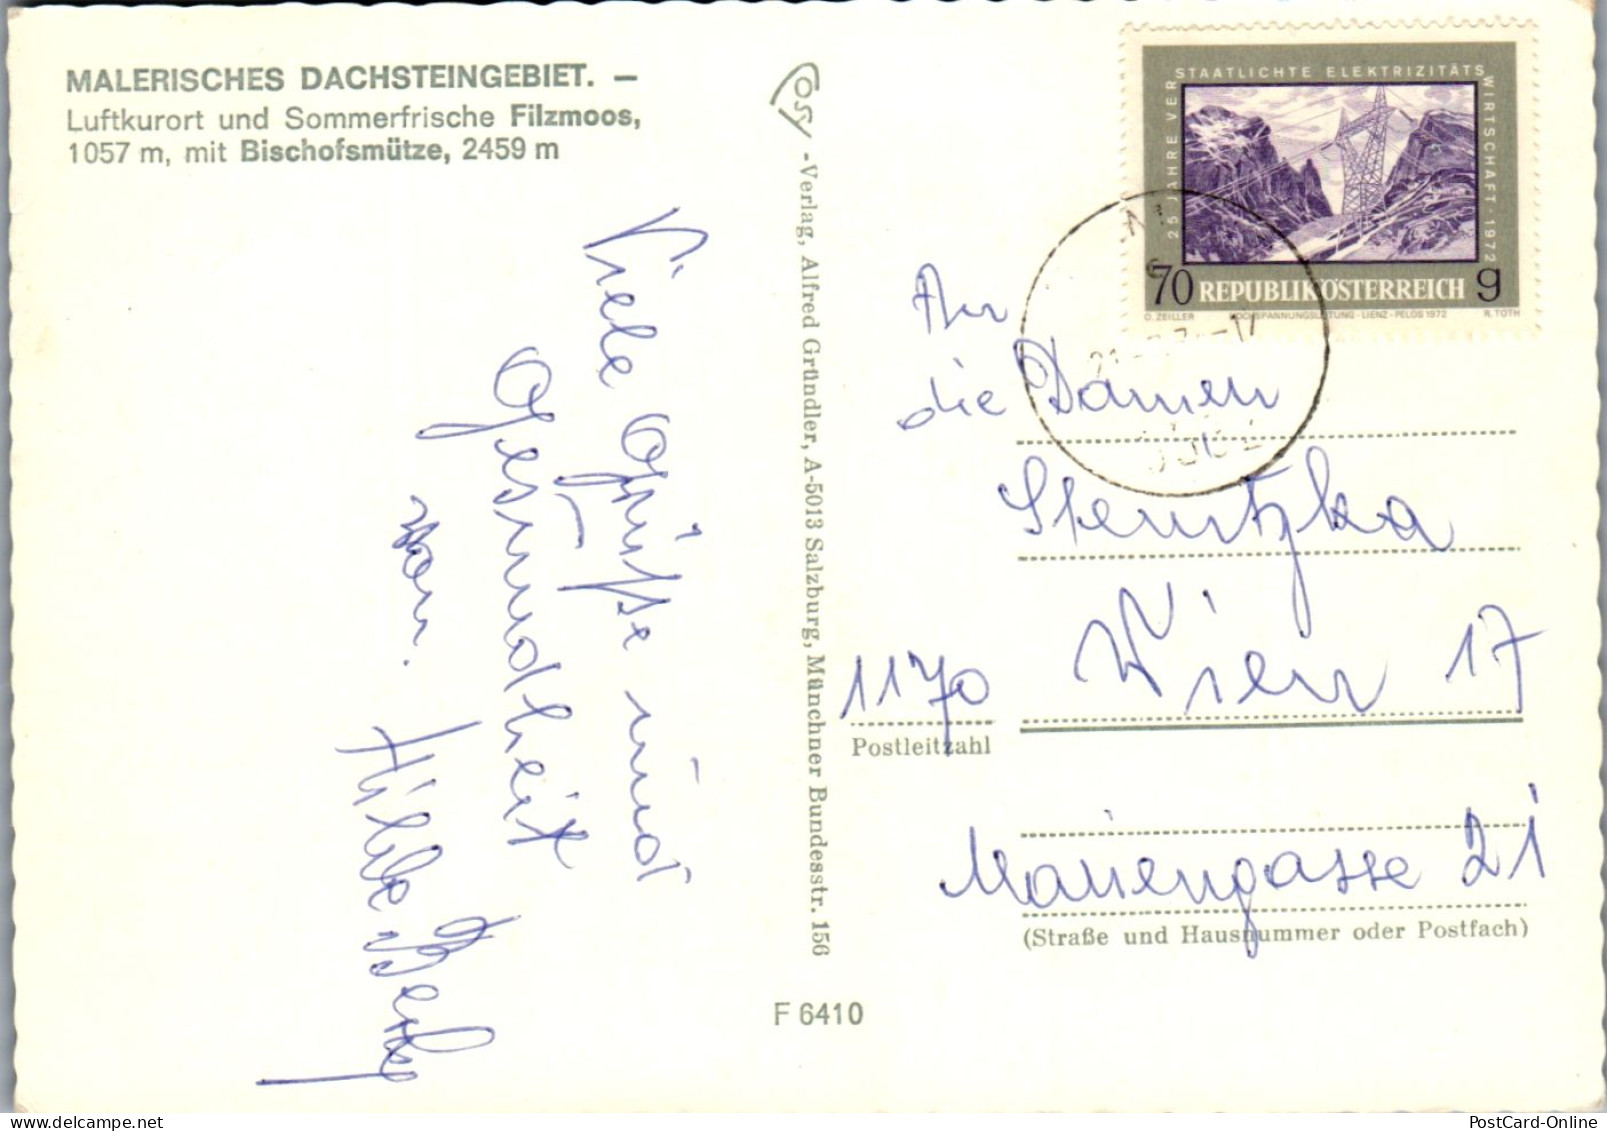 MALERISCHES DACHSTEINGEBIET. —
Luftkurort und Sommerfrische Filzmoos,
1057 m, mit Bischofsmütze, 2459 m
Viele Grüße und
Gesundheit
von.
Hilde
Cosy -Verlag, Alfred Gründler, A-5013 Salzburg, Münchner Bundesstr. 156
F 6410
25 JAHRE VERSTAATLICHTE ELEKTRIZITÄTSWIRTSCHAFT · 1972
70 REPUBLIK ÖSTERREICH g
O. ZEILLER HOCHSPANNUNGSLEITUNG - LIENZ - PELOS 1972 R. TOTH
An
die Damen
1170 Wien 17
Postleitzahl
Mariengasse 21
(Straße und Hausnummer oder Postfach)
PostCard-Online